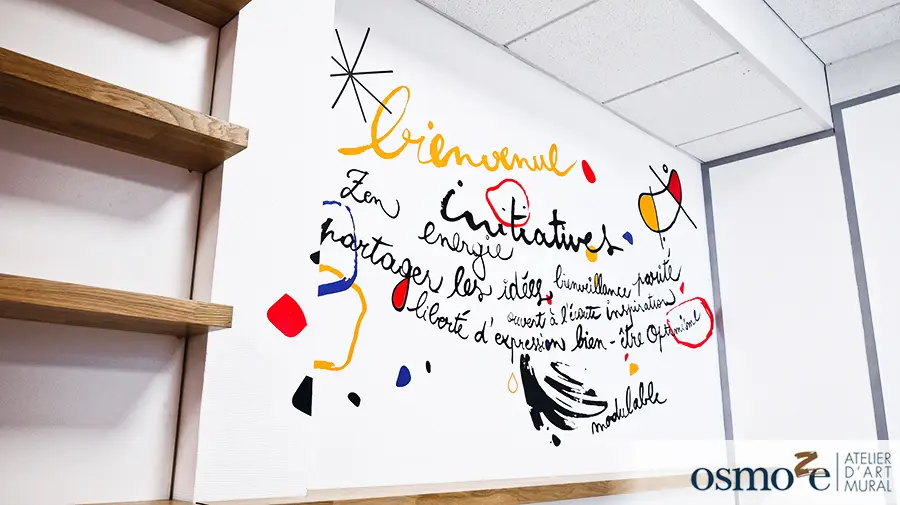 bienvenue
Zen
initiatives
energie
partager les idées
bienveillance parité
ouvert à l'écoute inspiration
liberté d'expression bien-être optimisme
modulable
osmoze
ATELIER
D'ART
MURAL